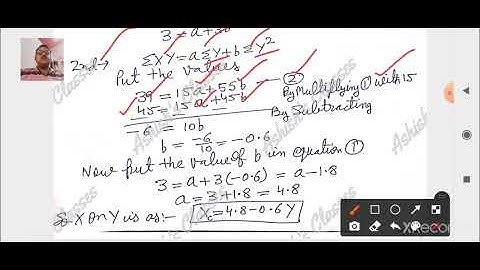 3 = a+3b
2nd→ ΣXY = aΣY+bΣY²
Put the values
39 = 15a+55b — ②
45 = 15a+45b By Multiplying ① with 15
-6 = 10b By Subtracting
b = -6/10 = -0.6
Now put the value of b in equation ①
3 = a+3(-0.6) = a-1.8
a = 3+1.8 = 4.8
So X on Y is as:- Xc = 4.8-0.6Y
Classes
Ashish
XRecorder